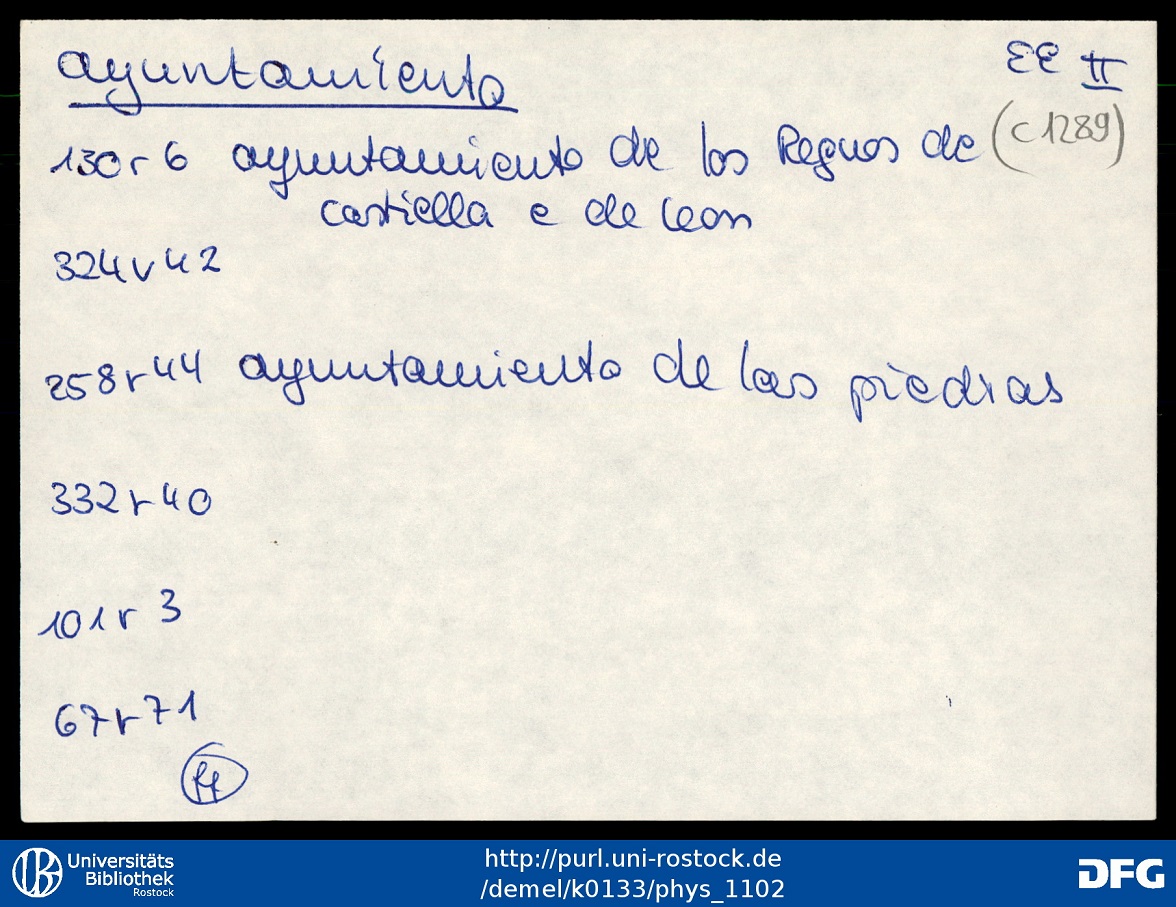 ayuntamiento EE II
130r 6 ayuntamiento de los Regnos de (c 1289)
castiella e de leon
324v 42
258r 44 ayuntamiento de las piedras
332r 40
101r 3
67r 71
ff
Universitäts
Bibliothek
Rostock
http://purl.uni-rostock.de
/demel/k0133/phys_1102
DFG